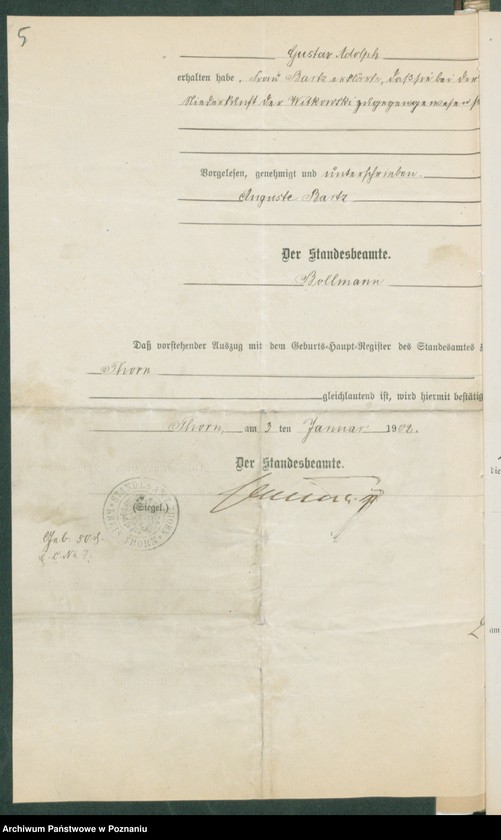 5
Gustav Adolph
erhalten habe. Frau Bartz erklärte, daß sie bei der
Niederkunft der Witkowski zugegen gewesen
Vorgelesen, genehmigt und unterschrieben.
Auguste Bartz
Der Standesbeamte.
Bollmann
Daß vorstehender Auszug mit dem Geburts-Haupt-Register des Standesamtes
Thorn
gleichlautend ist, wird hiermit bestätig
Thorn, am 3 ten Januar 1902.
Der Standesbeamte.
(Siegel.)
THORN
Geb. 50
die
am
Archiwum Państwowe w Poznaniu